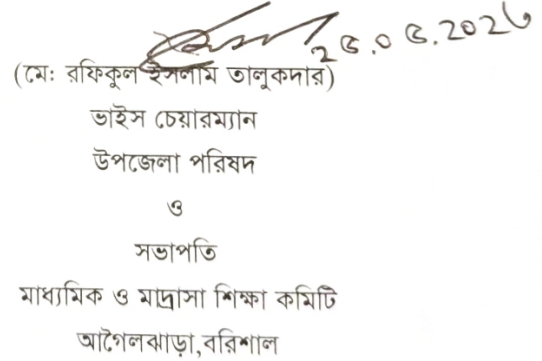 ২৫.০৫.২০২৬
(মো: রফিকুল ইসলাম তালুকদার)
ভাইস চেয়ারম্যান
উপজেলা পরিষদ
ও
সভাপতি
মাধ্যমিক ও মাদ্রাসা শিক্ষা কমিটি
আগৈলঝাড়া,বরিশাল